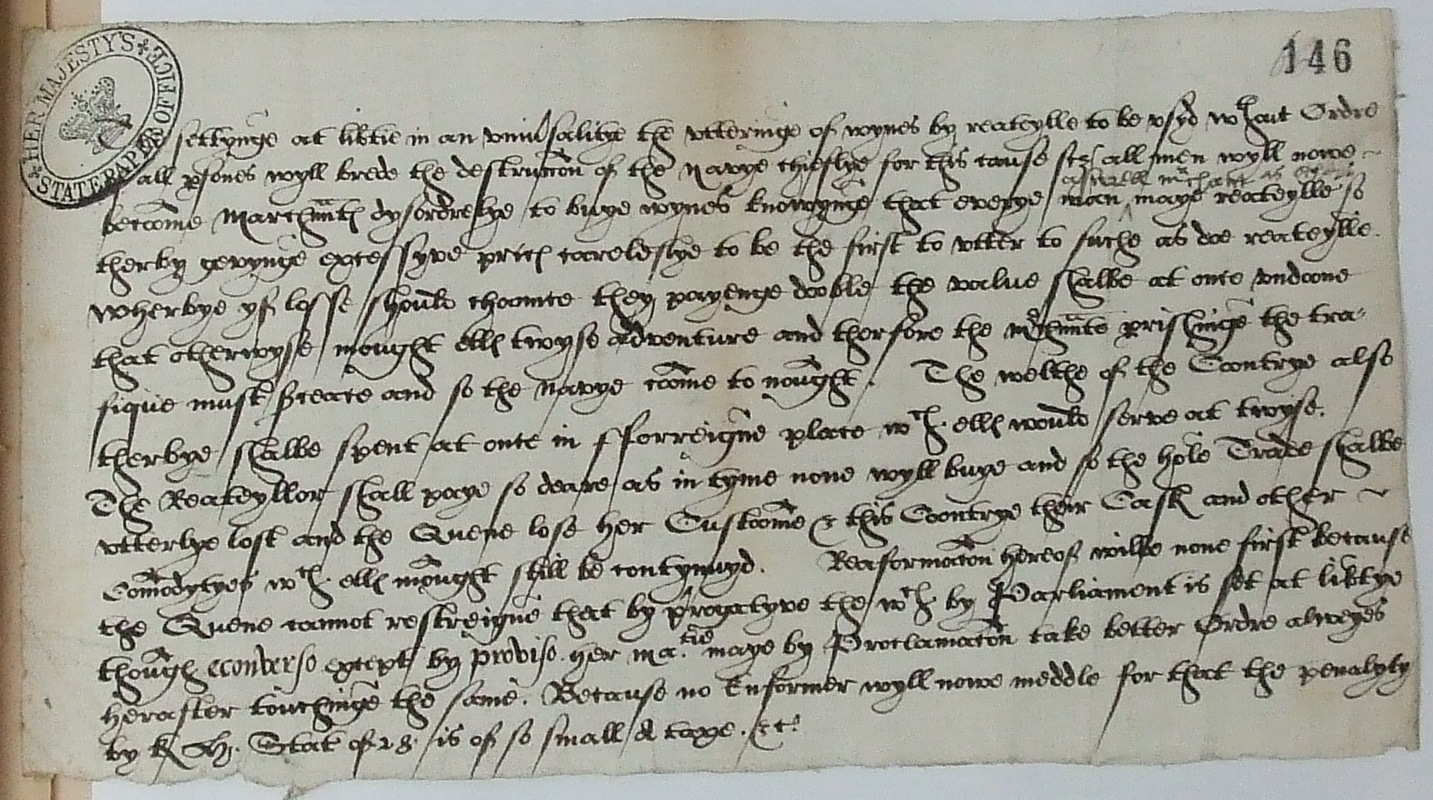 HER MAJESTY'S STATE PAPER OFFICE
146
settynge at lib'tie in an univ'salitye the vtteringe of wynes by reateylle to be vsyd w'hout Ordre
all p'sones wyll brede the destruccon of the Navye chieflye for this cause all men wyll nowe
aswell
become Marchaunts dysordrelye to buye wynes knowynge that everye man maye reateylle so
therby gevynge excessyve prices careleslye to be the first to vtter to suche as doe reateylle.
Wherbye yf losse should chaunce they payenge dooble the value shalbe at once vndoone
that otherwyse mought ells twyse adventure and therfore the m'chaunts perishinge the tra-
fique must seace and so the Navye come to nought. The welthe of the Countrye also
therbye shalbe spent at once in fforreigne place w'ch ells would serve at twyse.
The Reateyllor shall paye so deare as in tyme none wyll buye and so the hole Trade shalbe
vtterlye lost and the Quene lose her Custoome & this Countrye their Cask and other
Comodytyes w'ch ells mought still be contynuyd. Reaformacon hereof wilbe none first because
the Quene cannot restreigne that by p'rogatyve the w'ch by Parliament is set at lib'tye
though econverso except by proviso her ma.tie maye by Proclamacon take better Ordre alwayes
heraster touchinge the same. Because no Enformer wyll nowe meddle for that the penaltye
by Stat of 28 is of so small A taxe. &c.